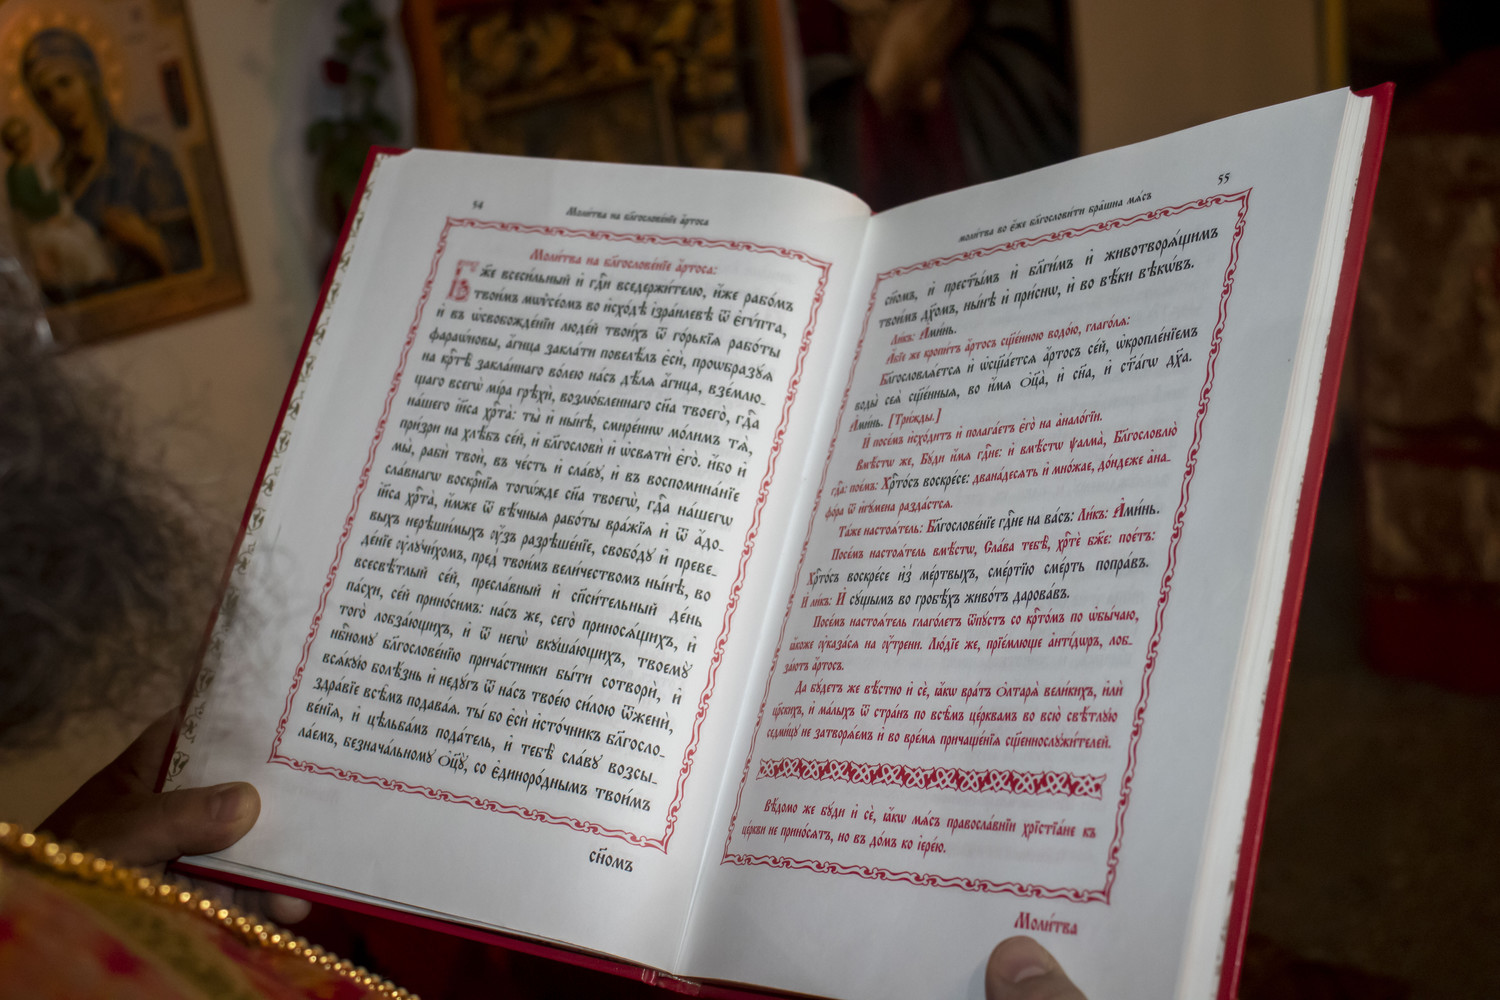 54
Моли́тва на бл҃гослове́нїе а҆́ртоса
Моли́тва на бл҃гослове́нїе а҆́ртоса:
Бж҃е всеси́льный и҆ гдⷭ҇и вседержи́телю, и҆́же рабо́мъ
твои́мъ мѡѷсе́омъ во и҆схо́дѣ і҆зра́илевѣ ѿ є҆гѵ́пта,
и҆ въ ѡ҆свобожде́нїи люде́й твои́хъ ѿ го́рькїѧ рабо́ты
фараѡ́новы, а҆́гнца закла́ти повелѣ́лъ є҆сѝ, проѡбразу́ѧ
на крⷭ҇тѣ̀ закла́ннаго во́лею на́съ дѣ́лѧ а҆́гнца, взе́млю-
щаго всегѡ̀ мі́ра грѣхѝ, возлю́бленнаго сн҃а твоего̀, гдⷭ҇а
на́шего і҆и҃са хрⷭ҇та̀: ты̀ и҆ ны́нѣ, смире́ннѡ мо́лимъ тѧ̀,
при́зри на хлѣ́бъ се́й, и҆ бл҃гословѝ и҆ ѡ҆свѧтѝ є҆го̀. и҆́бо и҆
мы̀, рабѝ твоѝ, въ че́сть и҆ сла́ву, и҆ въ воспомина́нїе
сла́внагѡ воскрⷭ҇нїѧ тогѡ́жде сн҃а твоегѡ̀, гдⷭ҇а на́шегѡ
і҆и҃са хрⷭ҇та̀, и҆́мже ѿ вѣ́чныѧ рабо́ты вра́жїѧ и҆ ѿ а҆́до-
выхъ нерѣши́мыхъ ᲂу҆́зъ разрѣше́нїе, свобо́ду и҆ преве-
де́нїе ᲂу҆лучи́хомъ, пред̾ твои́мъ вели́чествомъ ны́нѣ, во
всесвѣ́тлый се́й, пресла́вный и҆ сп҃си́тельный де́нь
па́схи, се́й прино́симъ: на́съ же, сего̀ принося́щихъ, и҆
того̀ лобза́ющихъ, и҆ ѿ негѡ̀ вкуша́ющихъ, твоему̀
нбⷭ҇ному бл҃гослове́нїю прича́стники бы́ти сотворѝ, и҆
всѧ́кую болѣ́знь и҆ неду́гъ ѿ на́съ твое́ю си́лою ѿженѝ,
здра́вїе всѣ̑мъ подава́ѧ. ты́ бо є҆сѝ и҆сто́чникъ бл҃госло-
ве́нїѧ, и҆ цѣльба́мъ пода́тель, и҆ тебѣ̀ сла́ву возсы-
ла́емъ, безнача́льному ѻ҆ц҃у̀, со є҆диноро́днымъ твои́мъ
сн҃омъ
55
моли́тва во є҆́же бл҃гослови́ти бра̑шна мѧ́съ
сн҃омъ, и҆ прест҃ы́мъ и҆ бл҃ги́мъ и҆ животворѧ́щимъ
твои́мъ дх҃омъ, ны́нѣ и҆ при́снѡ, и҆ во вѣ́ки вѣкѡ́въ.
Ли́къ: А҆ми́нь.
А҆́бїе же кропи́тъ а҆́ртосъ сщ҃е́нною водо́ю, глаго́лѧ:
Бл҃гословлѧ́етсѧ и҆ ѡ҆сщ҃а́етсѧ а҆́ртосъ се́й, ѡ҆кропле́нїемъ
воды̀ сеѧ̀ сщ҃е́нныѧ, во и҆́мѧ ѻ҆ц҃а̀, и҆ сн҃а, и҆ ст҃а́гѡ дх҃а.
А҆ми́нь. [Три́жды.]
И҆ посе́мъ и҆схо́дитъ и҆ полага́етъ є҆го̀ на а҆нало́гїи.
Вмѣ́стѡ же, Бу́ди и҆́мѧ гдⷭ҇не: и҆ вмѣ́стѡ ѱалма̀, Бл҃гословлю̀
гдⷭ҇а: пое́мъ: Хрⷭ҇то́съ воскре́се: двана́десѧть и҆ мно́жае, до́ндеже а҆на-
фо́ра ѿ и҆гу́мена разда́стсѧ.
Та́же настоѧ́тель: Бл҃гослове́нїе гдⷭ҇не на ва́съ: Ли́къ: А҆ми́нь.
Посе́мъ настоѧ́тель вмѣ́стѡ, Сла́ва тебѣ̀, хрⷭ҇тѐ бж҃е: пое́тъ:
Хрⷭ҇то́съ воскре́се и҆з̾ ме́ртвыхъ, сме́ртїю сме́рть попра́въ.
И҆ ли́къ: И҆ су́щымъ во гробѣ́хъ живо́тъ дарова́въ.
Посе́мъ настоѧ́тель глаго́летъ ѿпу́стъ со крⷭ҇то́мъ по ѡ҆бы́чаю,
ꙗ҆́коже ᲂу҆каза́сѧ на ᲂу҆́трени. Лю́дїе же, прїе́млюще а҆нтїдѡ́ръ, лоб-
за́ютъ а҆́ртосъ.
Да бу́детъ же вѣ́стно и҆ сѐ, ꙗ҆́кѡ вра́тъ ѻ҆лтарѧ̀ вели́кихъ, и҆лѝ
ца́рскихъ, и҆ ма́лыхъ ѿ стра́нъ по всѣ̑мъ це́рквамъ во всю̀ свѣ́тлую
седми́цу не затворѧ́емъ и҆ во вре́мѧ причаще́нїѧ сщ҃еннослужи́телей.
Вѣ́домо же бу́ди и҆ сѐ, ꙗ҆́кѡ мѧ́съ правосла́внїи хрїстїа́не къ
це́ркви не прино́сѧтъ, но въ до́мъ ко і҆ере́ю.
Моли́тва